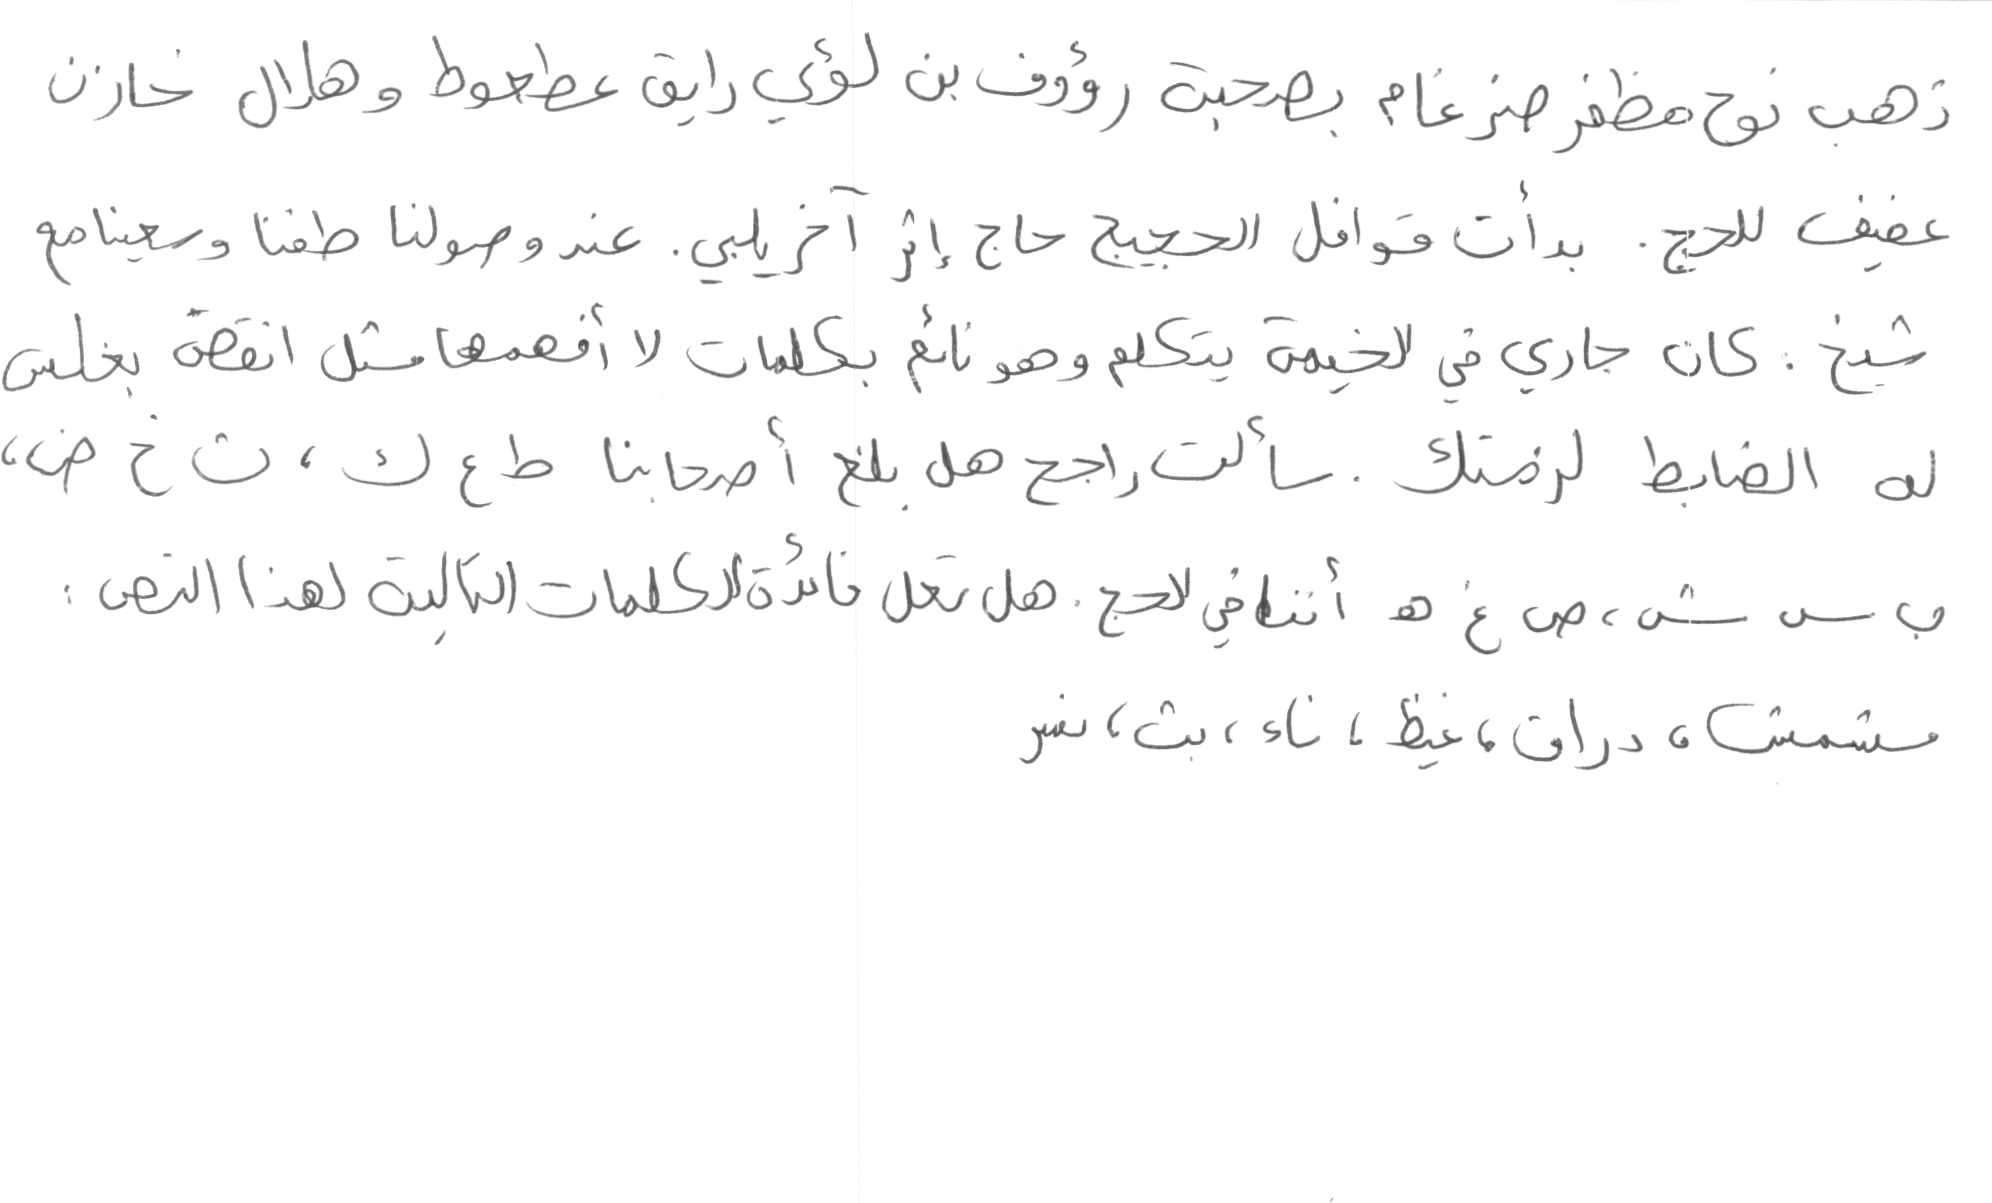 ذهب نوح مظفر ضرغام بصحبة رؤوف بن لؤي رايق عطعوط وهلال خازن
عفيف للحج . بدأت قوافل الحجيج حاج إثر آخر يلبي . عند وصولنا طفنا وسعينا مع
شيخ . كان جاري في الخيمة يتكلم وهو نائم بكلمات لا أفهمها مثل انقضة بغلس
له الضابط لرفستك . سألت راجح هل بلغ أصحابنا ط ع ك ، ث خ ض ،
ب س ش ، ص غ ه أننا في الحج . هل تعل فائدة الكلمات التالية لهذا النص :
مشمش ، دراق ، غيظ ، ناء ، بث ، نسر